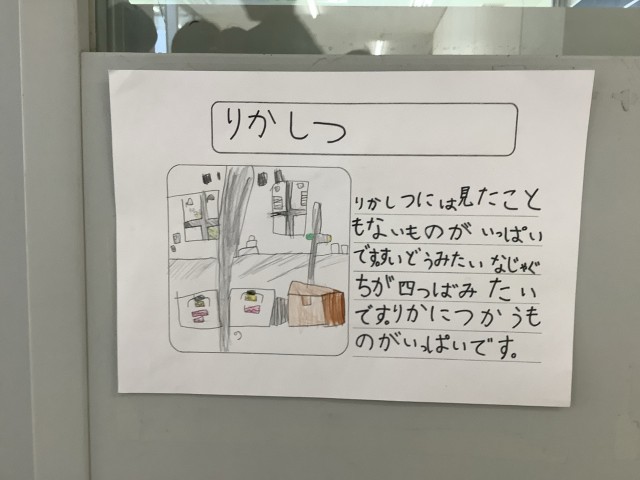 りかしつ
りかしつには見たこと
もないものがいっぱい
です。すいどうみたいなじゃぐ
ちが四つばみたい
です。りかにつかうも
のがいっぱいです。